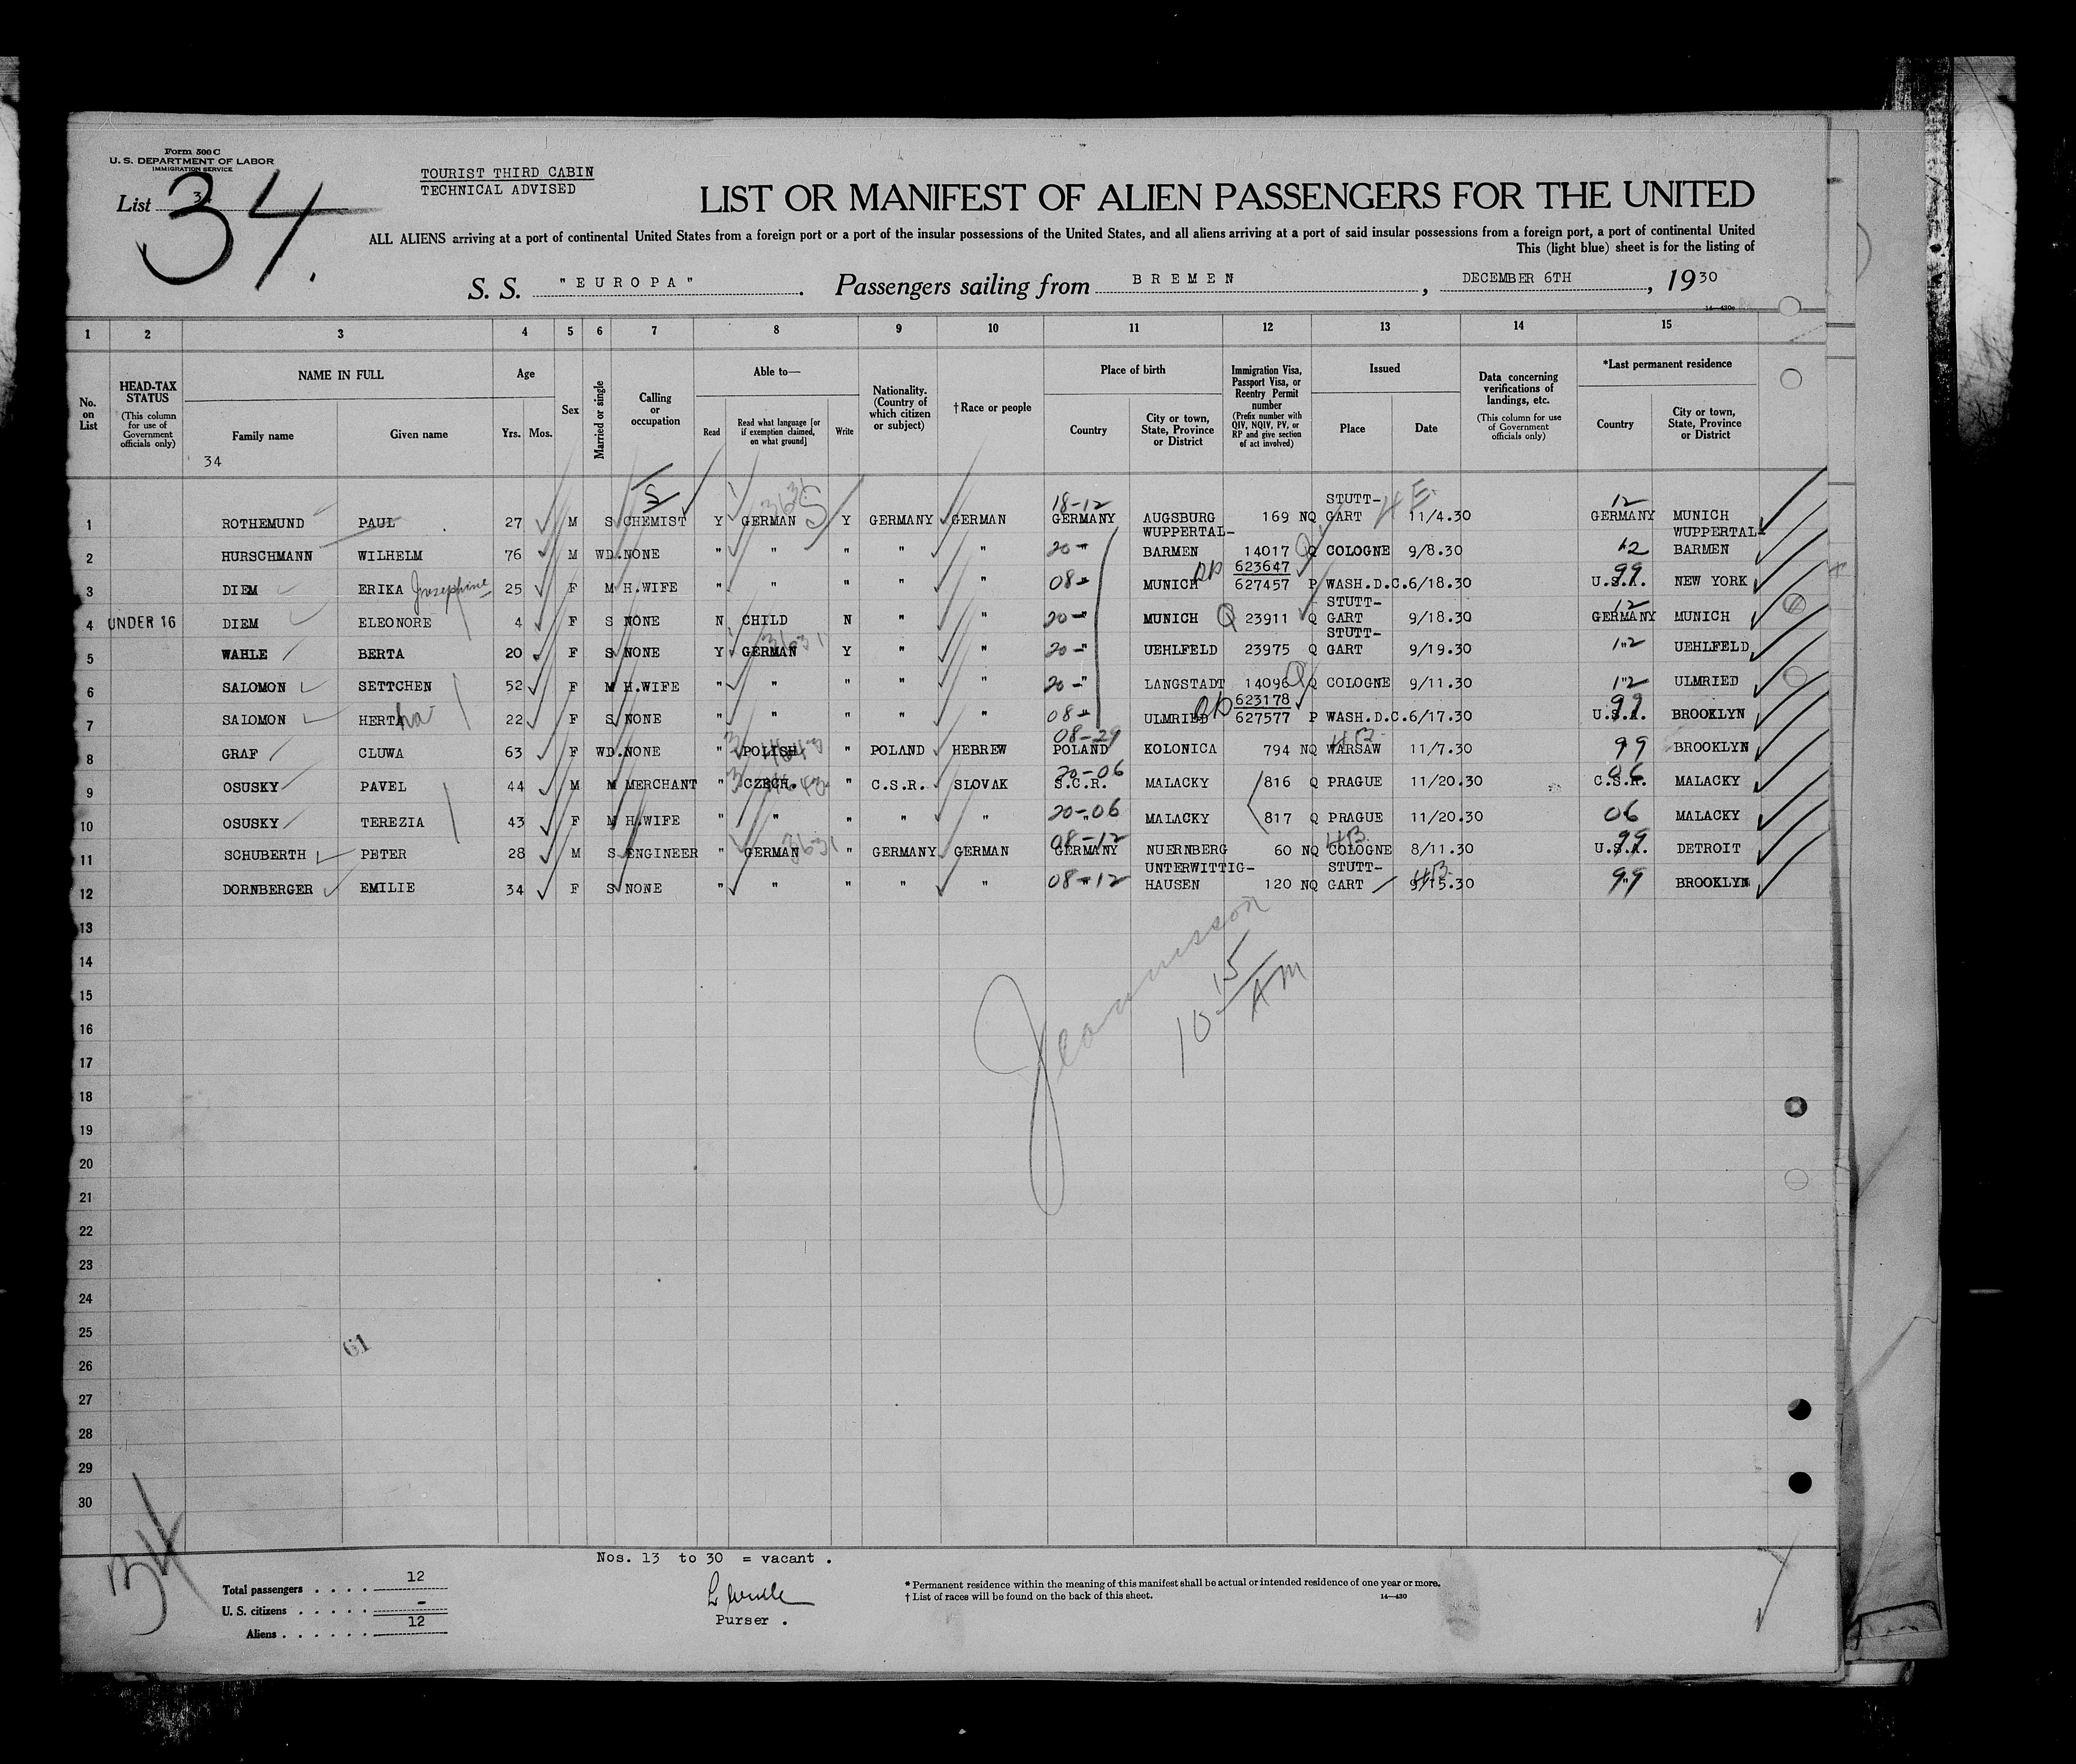 Form 500 C
U. S. DEPARTMENT OF LABOR
IMMIGRATION SERVICE
List 3
34.
TOURIST THIRD CABIN
TECHNICAL ADVISED
LIST OR MANIFEST OF ALIEN PASSENGERS FOR THE UNITED
ALL ALIENS arriving at a port of continental United States from a foreign port or a port of the insular possessions of the United States, and all aliens arriving at a port of said insular possessions from a foreign port, a port of continental United
This (light blue) sheet is for the listing of
S. S. "EUROPA". Passengers sailing from BREMEN, DECEMBER 6TH, 1930
1 2 3 4 5 6 7 8 9 10 11 12 13 14 15
No. on List
HEAD-TAX STATUS (This column for use of Government officials only)
NAME IN FULL
Family name
Given name
Age
Yrs. Mos.
Sex
Married or single
Calling or occupation
Able to—
Read
Read what language [or if exemption claimed, on what ground]
Write
Nationality. (Country of which citizen or subject)
† Race or people
Place of birth
Country
City or town, State, Province or District
Immigration Visa, Passport Visa, or Reentry Permit number (Prefix number with QIV, NQIV, PV, or RP and give section of act involved)
Issued
Place
Date
Data concerning verifications of landings, etc. (This column for use of Government officials only)
*Last permanent residence
Country
City or town, State, Province or District
34
1 ROTHEMUND PAUL 27 M S CHEMIST Y GERMAN Y GERMANY GERMAN 18-12 GERMANY AUGSBURG 169 NQ STUTT-GART 11/4.30 12 GERMANY MUNICH
2 HURSCHMANN WILHELM 76 M WD. NONE " " " " " 20-" WUPPERTAL-BARMEN 14017 Q COLOGNE 9/8.30 12 WUPPERTAL-BARMEN
3 DIEM ERIKA Josephine 25 F M H.WIFE " " " " " 08-" MUNICH RP 623647 627457 P WASH.D.C. 6/18.30 99 U.S.A. NEW YORK
4 UNDER 16 DIEM ELEONORE 4 F S NONE N CHILD N " " 20-" MUNICH Q 23911 Q STUTT-GART 9/18.30 12 GERMANY MUNICH
5 WAHLE BERTA 20 F S NONE Y GERMAN Y " " 20-" UEHLFELD 23975 Q STUTT-GART 9/19.30 12 " UEHLFELD
6 SALOMON SETTCHEN 52 F M H.WIFE " " " " " 20-" LANGSTADT 14096 Q COLOGNE 9/11.30 12 " ULMRIED
7 SALOMON HERTha 22 F S NONE " " " " " 08-" ULMRIED RP 623178 627577 P WASH.D.C. 6/17.30 99 U.S.A. BROOKLYN
8 GRAF CLUWA 63 F WD. NONE " POLISH " POLAND HEBREW 08-29 POLAND KOLONICA 794 NQ WARSAW 11/7.30 99 BROOKLYN
9 OSUSKY PAVEL 44 M M MERCHANT " CZECH. " C.S.R. SLOVAK 20-06 S.C.R. MALACKY 816 Q PRAGUE 11/20.30 06 C.S.R. MALACKY
10 OSUSKY TEREZIA 43 F M H.WIFE " " " " " 20-06 MALACKY 817 Q PRAGUE 11/20.30 06 MALACKY
11 SCHUBERTH PETER 28 M S ENGINEER " GERMAN 3631 " GERMANY GERMAN 08-12 GERMANY NUERNBERG 60 NQ COLOGNE 8/11.30 99 U.S.A. DETROIT
12 DORNBERGER EMILIE 34 F S NONE " " " " " 08-12 UNTERWITTIG-HAUSEN 120 NQ STUTT-GART 9/15.30 99 " BROOKLYN
13
14
15
16
17
18
19
20
21
22
23
24
25
26
27
28
29
30
10 15 AM
61
34
Nos. 13 to 30 = vacant .
Total passengers . . . . 12
U. S. citizens . . . . . -
Aliens . . . . . . 12
Purser .
* Permanent residence within the meaning of this manifest shall be actual or intended residence of one year or more.
† List of races will be found on the back of this sheet.
14—430